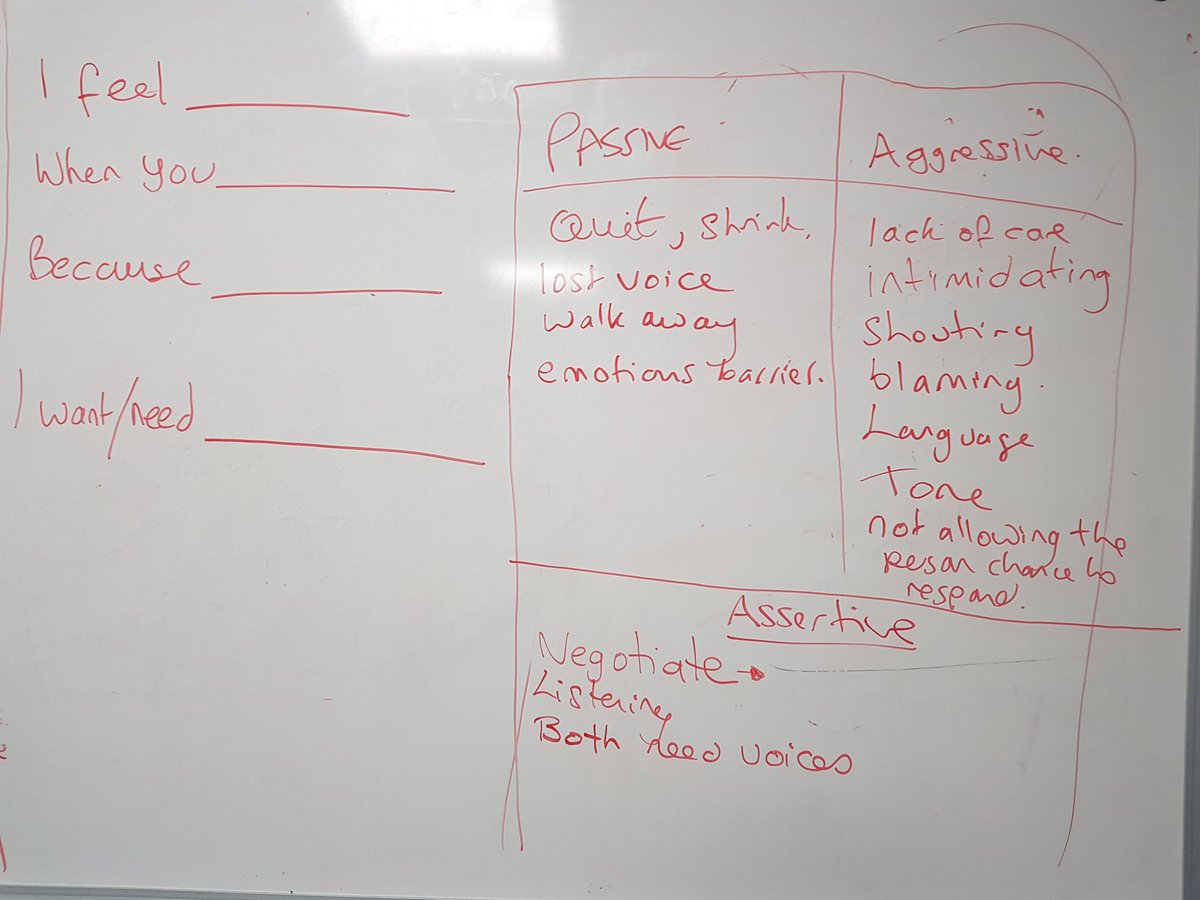 I feel ____________
When you ____________
Because ____________
I want/need ____________
PASSIVE
Quit, shrink,
lost voice
walk away
emotions barrier.
Aggressive.
lack of care
intimidating
Shouting
blaming.
Language
Tone
not allowing the
person chance to
respond.
Assertive
Negotiate
Listening
Both need voices